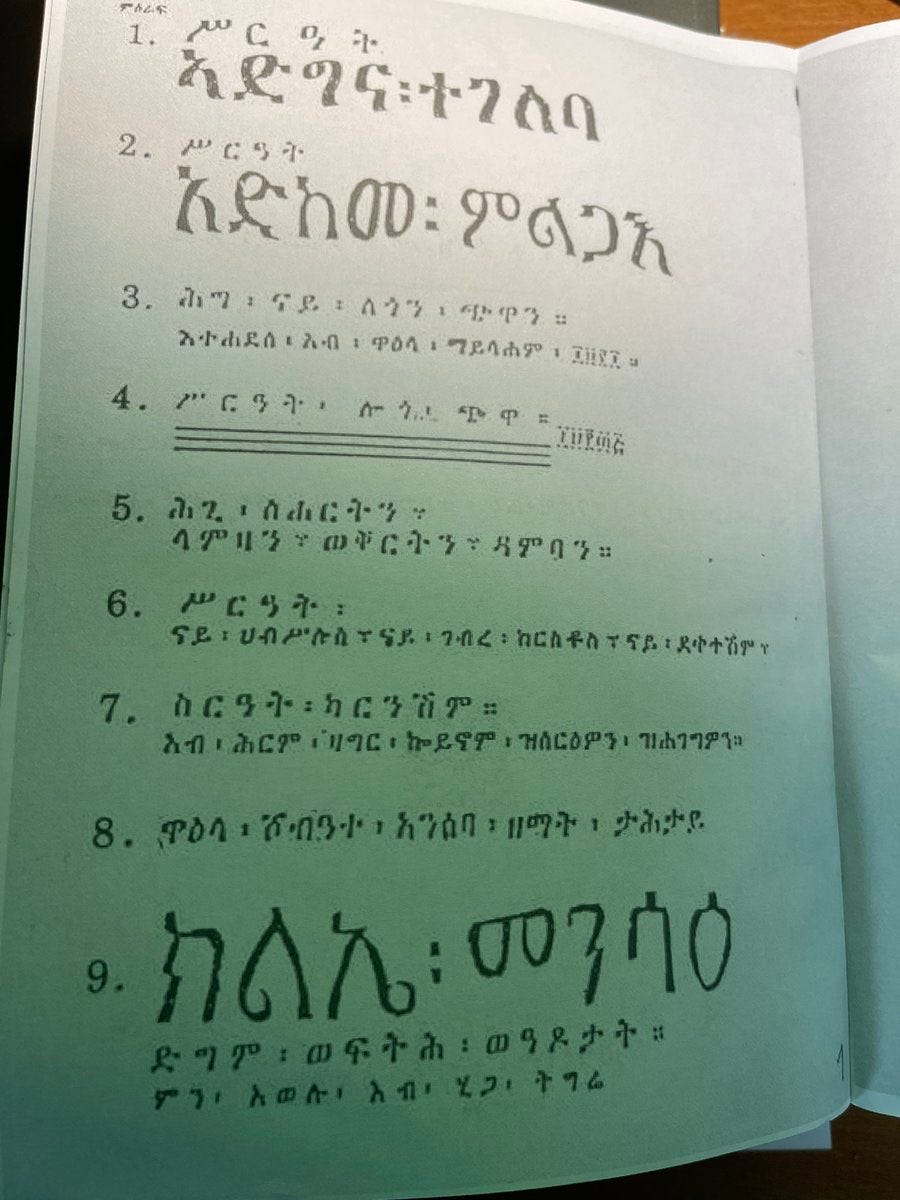 ምዕራፍ
1. ሥርዓት
ኣድግና፡ተገለባ
2. ሥርዓት
አድከመ፡ ምልጋእ
3. ሕግ ፡ ናይ ፡ ለጎን ፡ ጭዋን ።
እተሐደሰ ፡ አብ ፡ ዋዕላ ፡ ማይላሐም ፡
4. ሥርዓት፡ ሎጎ ጭዋ ።
5. ሕጊ ፡ ስሐርትን ፡
ላምዛን ፡ ወቐርትን ፡ ዳምባን ።
6. ሥርዓት ፡
ናይ ፡ ሀብሥሉስ ፡ ናይ ፡ ገብረ ፡ ክርስቶስ ፡ ናይ ፡ ደቀተሽም ፡
7. ስርዓት ፡ ካርንሽም ።
እብ ፡ ሕርም ፡ ዛግር ፡ ኰይኖም ፡ ዝሰርዕዎን ፡ ዝሐገግዎን ።
8. ዋዕላ ፡ ሾብዓተ ፡ አንሰባ ፡ ዘማት ፡ ታሕታይ
9. ክልኤ ፡ መንሳዕ
ድግም ፡ ወፍትሕ ፡ ወዓዶታት ።
ምን ፡ አወሉ ፡ እብ ፡ ሂጋ ፡ ትግሬ
1